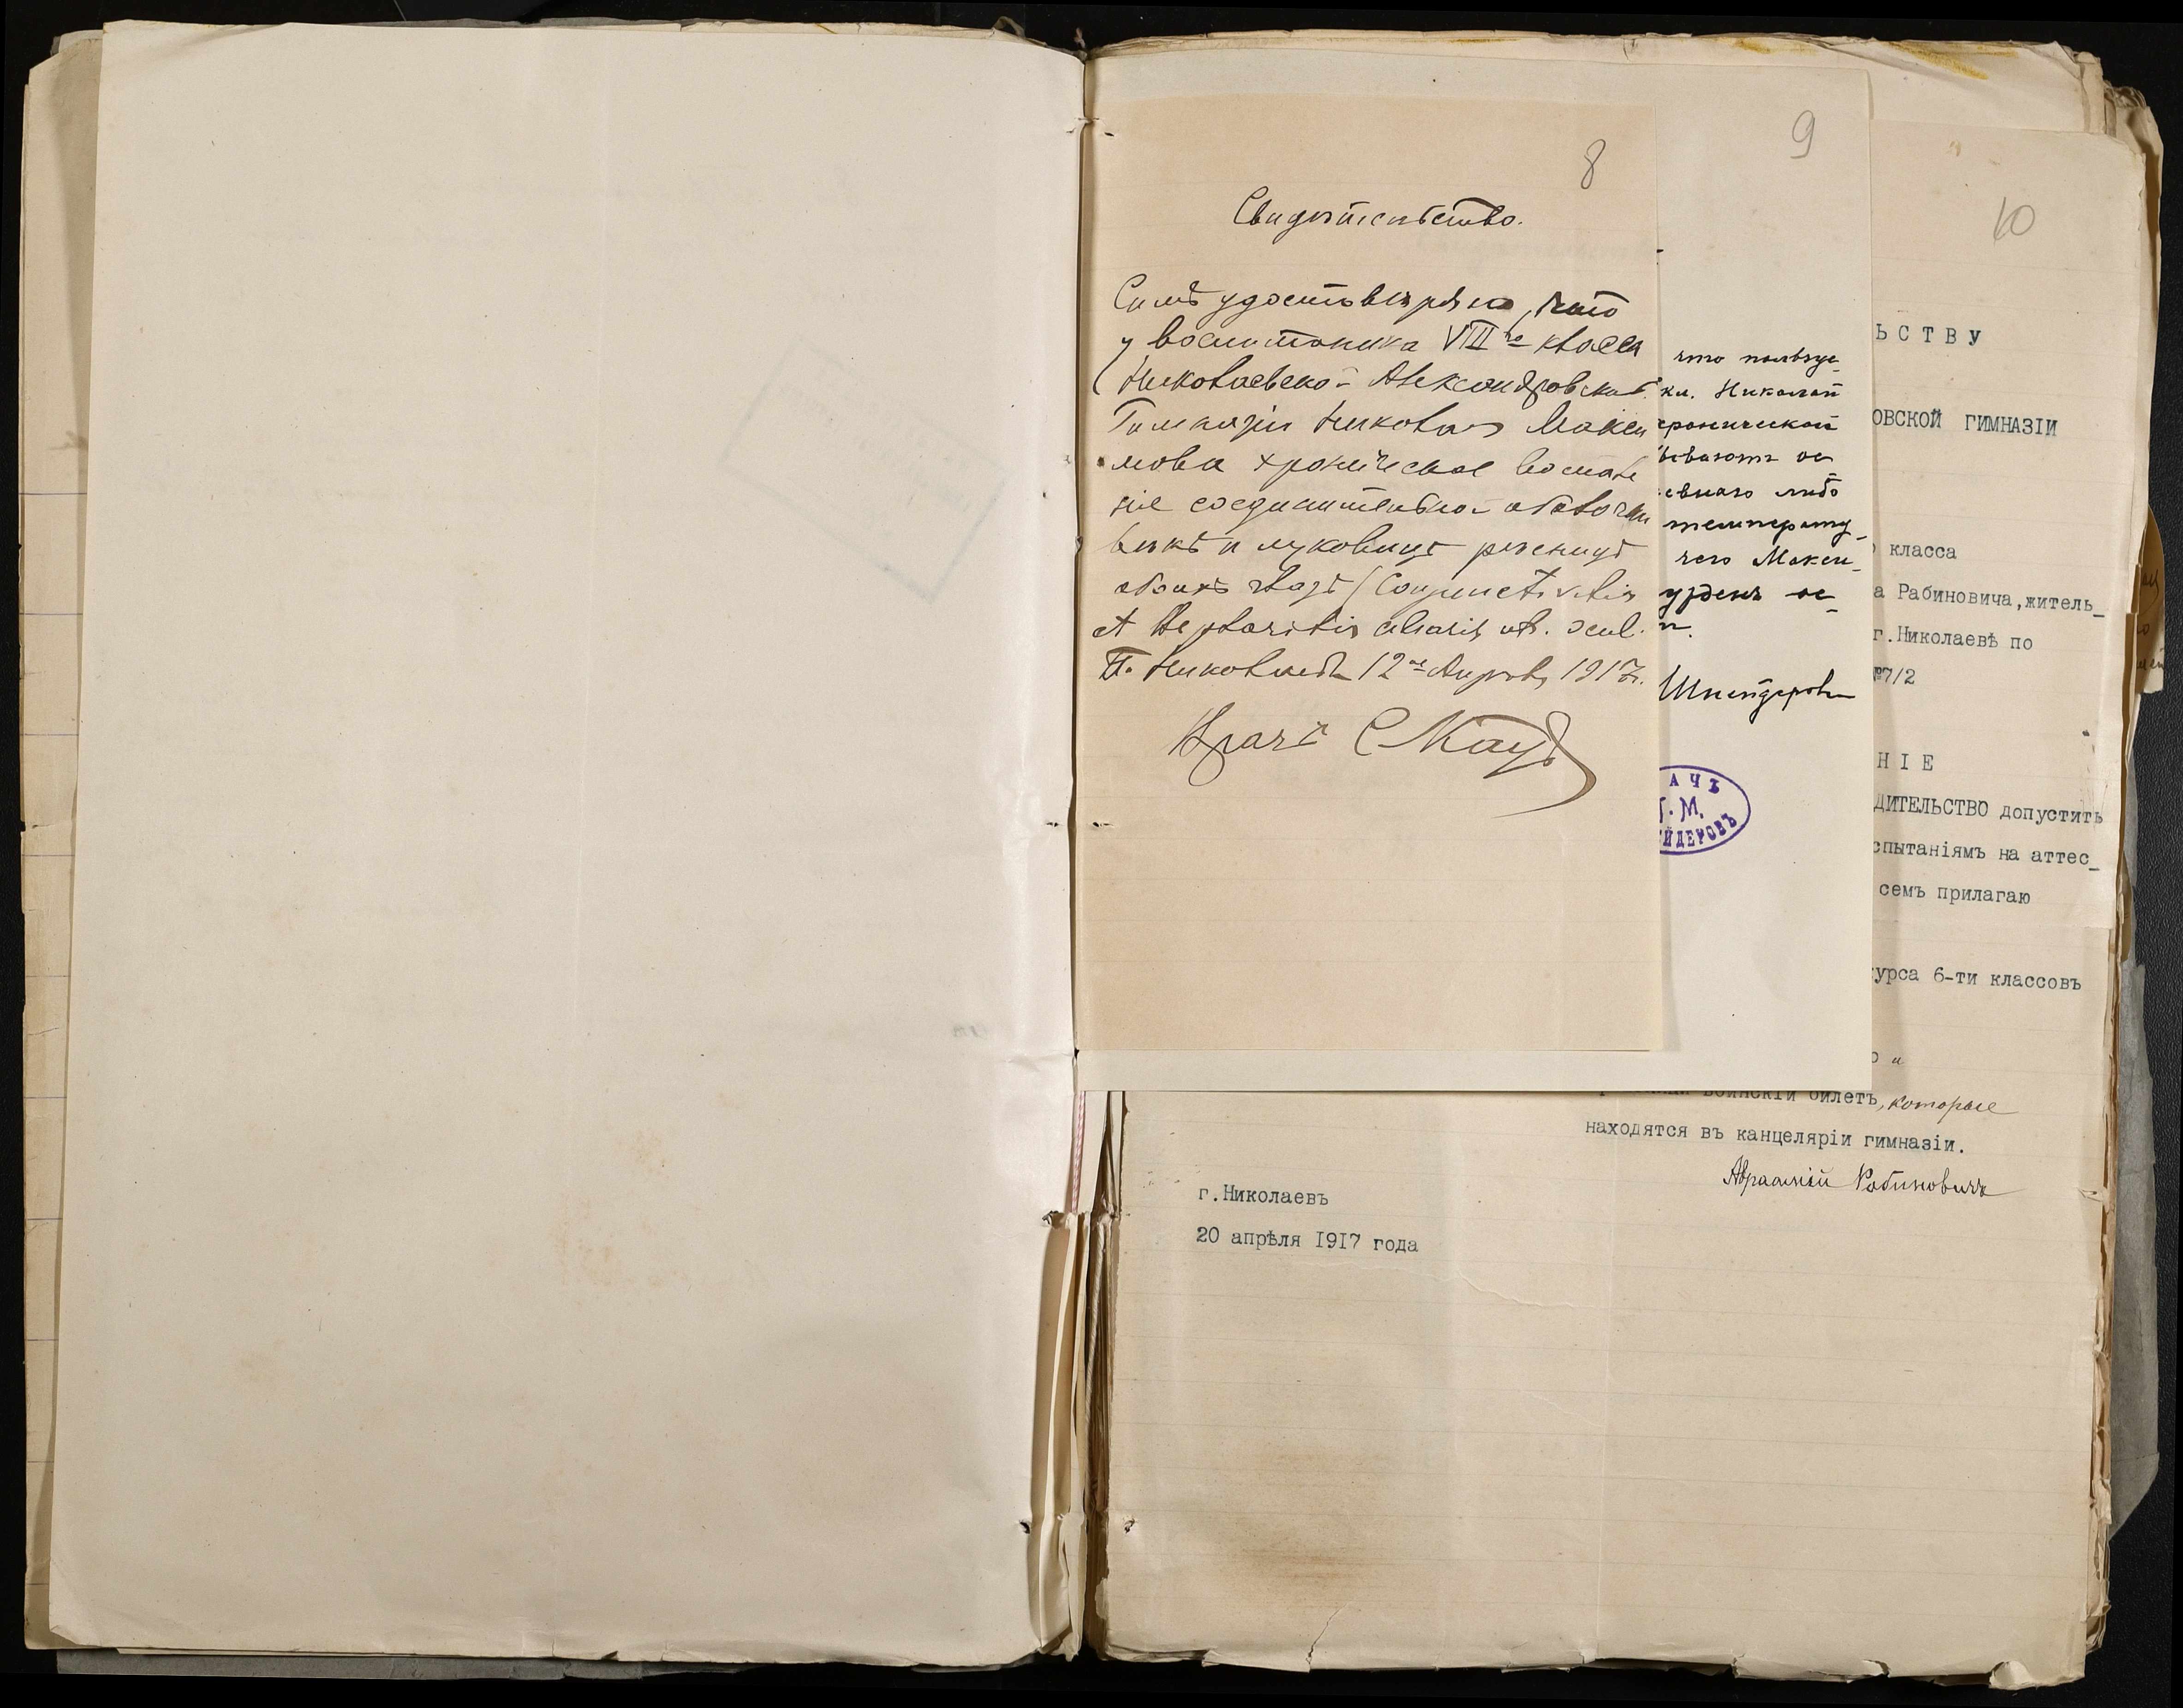 8
Свидѣтельство.
Симъ удостовѣряю, что
у воспитаника VIIIго класса
Николаевской Александровской
Гимназіи Николая Макси
мова хроническое воспале
ніе соединительной оболочки
вѣкъ и луковицъ рѣсницъ
обоихъ глазъ (Conjunctivitis
et Blepharitis ciliaris utr. ocul.
Г. Николаевъ 12го Апрѣля 1917 г.
Врачъ С Кацъ
9
что пользуе
ки. Николай
хронической
ос
евнаго либо
температу_
чего Макси_
ос_
Шнейдеровъ
АЧЪ
Г. М.
ЙДЕРОВЪ
10
ЬСТВУ
ОВСКОЙ ГИМНАЗІИ
класса
а Рабиновича, житель_
г. Николаевѣ по
№7/2
НІЕ
ДИТЕЛЬСТВО допустить
спытаніямъ на аттес_
семъ прилагаю
урса 6-ти классовъ
о и
воинскій билетъ, которые
находятся въ канцеляріи гимназіи.
Авраамій Рабиновичъ
г. Николаевъ
20 апрѣля 1917 года